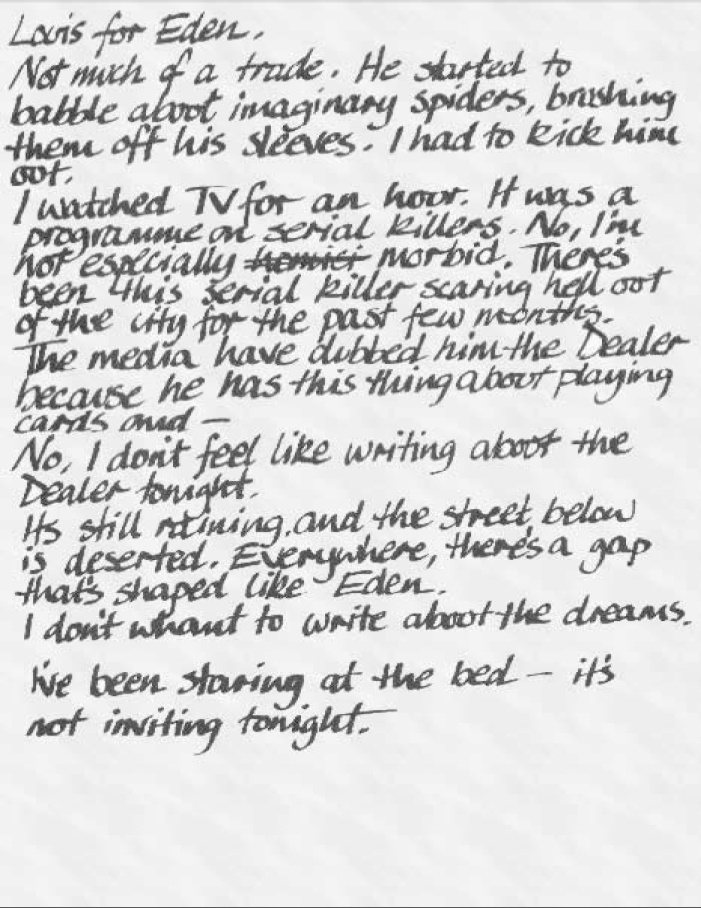 Louis for Eden.
Not much of a trade. He started to
babble about imaginary spiders, brushing
them off his sleeves. I had to kick him
out.
I watched TV for an hour. It was a
programme on serial killers. No, I'm
not especially morbid. There's
been this serial killer scaring hell out
of the city for the past few months.
The media have dubbed him the Dealer
because he has this thing about playing
cards and —
No, I don't feel like writing about the
Dealer tonight.
Its still raining, and the street below
is deserted. Everywhere, there's a gap
that's shaped like Eden.
I don't whant to write about the dreams.
I've been staring at the bed — it's
not inviting tonight.